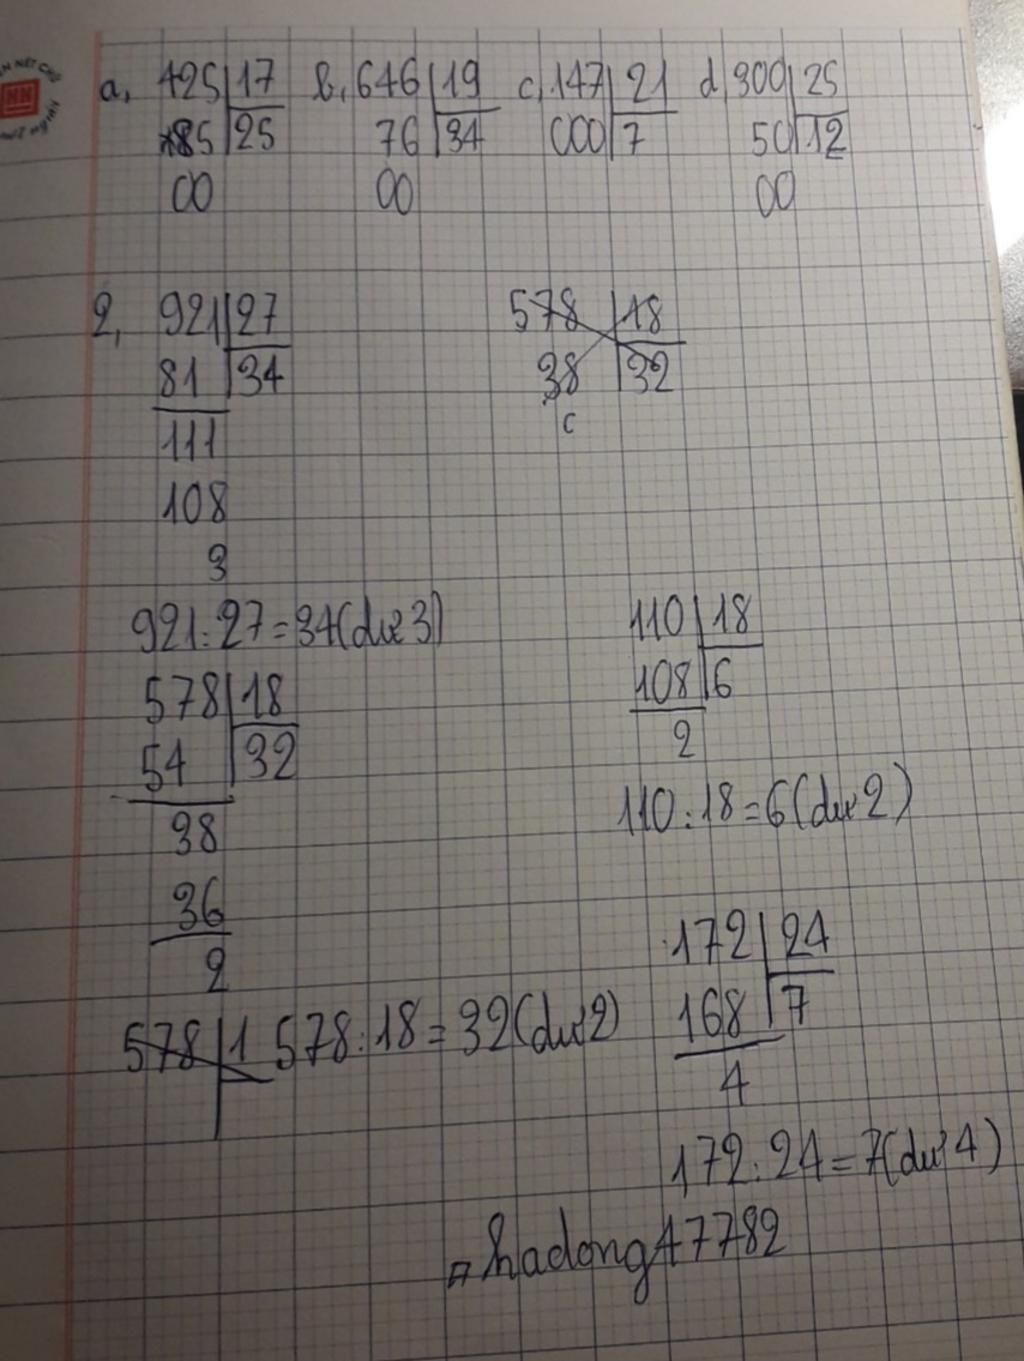 a, 425 17 b, 646 19 c, 147 21 d, 300 25
85 25 76 34 000 7 50 12
00 00 00
2, 921 27 578 18
81 34 38 32
111 c
108
3
921:27=34(dư 3) 110 18
578 18 108 6
54 32 2
38 110:18=6(dư 2)
36 172 24
2 168 7
578 1 578:18=32(dư 2)
4
172:24=7(dư 4)
hadong47782